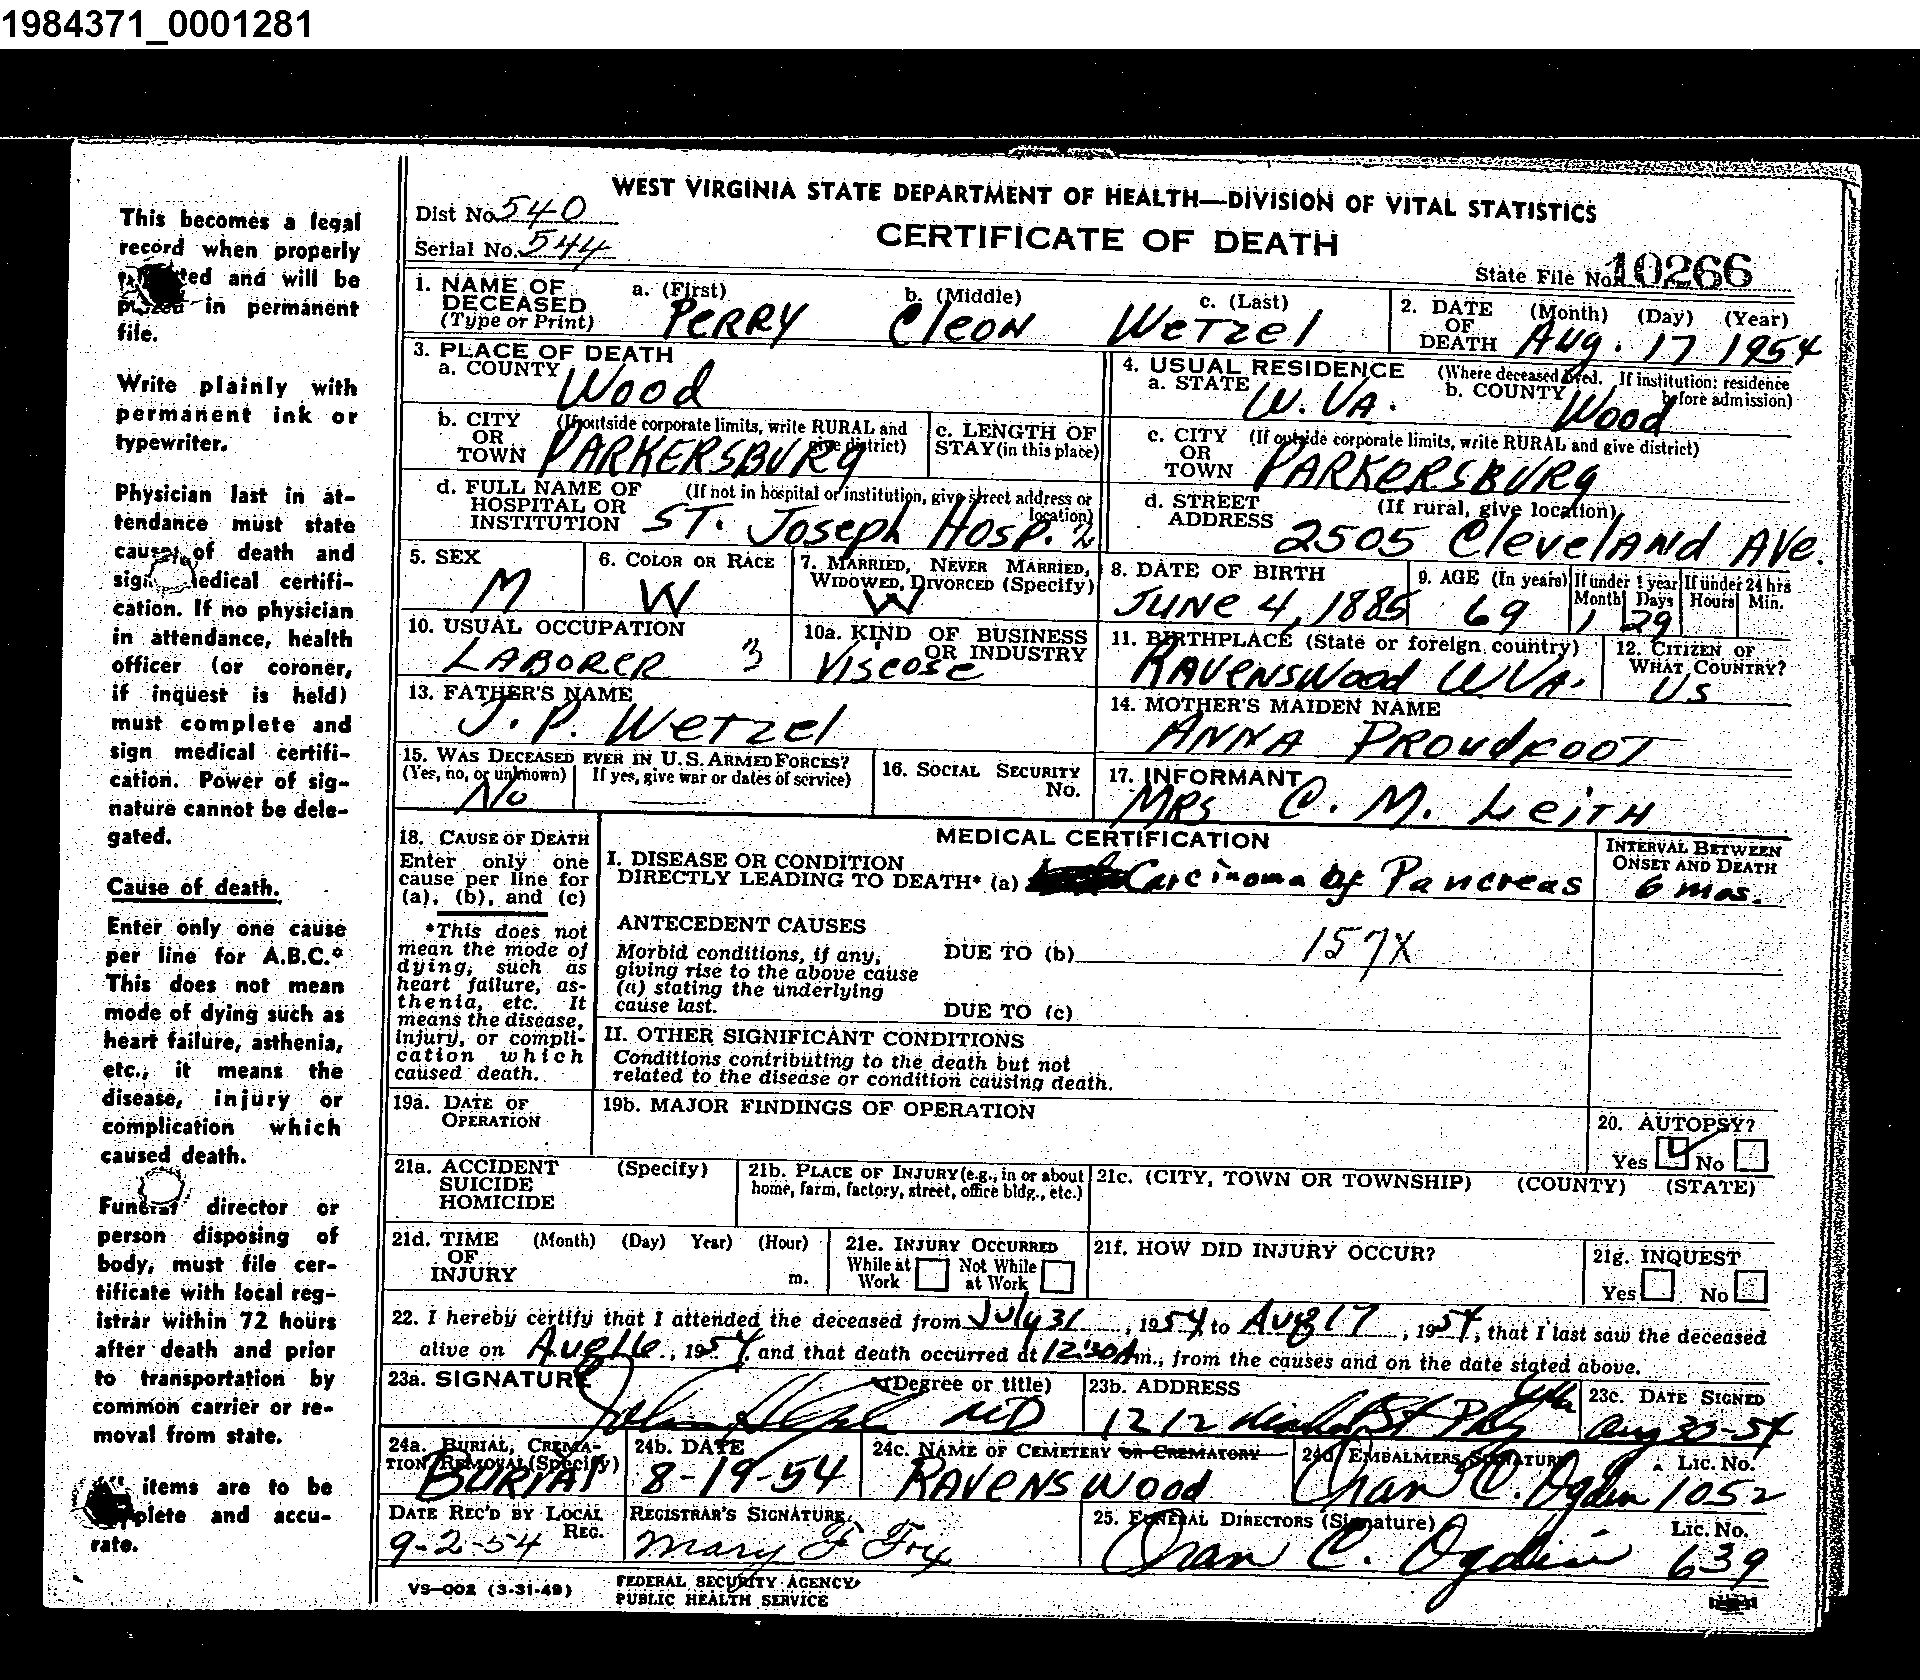 1984371_0001281
This becomes a legal
record when properly
and will be
in permanent
file.
Write plainly with
permanent ink or
typewriter.
Physician last in at-
tendance must state
cause of death and
sign medical certifi-
cation. If no physician
in attendance, health
officer (or coroner,
if inquest is held)
must complete and
sign medical certifi-
cation. Power of sig-
nature cannot be dele-
gated.
Cause of death.
Enter only one cause
per line for A.B.C.*
This does not mean
mode of dying such as
heart failure, asthenia,
etc., it means the
disease, injury or
complication which
caused death.
Funeral director or
person disposing of
body, must file cer-
tificate with local reg-
istrar within 72 hours
after death and prior
to transportation by
common carrier or re-
moval from state.
items are to be
and accu-
rate.
WEST VIRGINIA STATE DEPARTMENT OF HEALTH—DIVISION OF VITAL STATISTICS
Dist No. 540
CERTIFICATE OF DEATH
Serial No. 544
State File No. 10266
1. NAME OF DECEASED (Type or Print) a. (First) PERRY b. (Middle) Cleon c. (Last) Wetzel
2. DATE OF DEATH (Month) (Day) (Year) Aug. 17 1954
3. PLACE OF DEATH
a. COUNTY Wood
4. USUAL RESIDENCE (Where deceased lived. If institution: residence before admission)
a. STATE W. VA. b. COUNTY Wood
b. CITY OR TOWN (If outside corporate limits, write RURAL and give district) PARKERSBURG
c. LENGTH OF STAY (in this place)
c. CITY OR TOWN (If outside corporate limits, write RURAL and give district) PARKERSBURG
d. FULL NAME OF HOSPITAL OR INSTITUTION (If not in hospital or institution, give street address or location) ST. Joseph Hosp. 2
d. STREET ADDRESS (If rural, give location) 2505 Cleveland Ave.
5. SEX M
6. COLOR OR RACE W
7. MARRIED, NEVER MARRIED, WIDOWED, DIVORCED (Specify) W
8. DATE OF BIRTH JUNE 4, 1885
9. AGE (In years) 69 If under 1 year Month 1 Days 29 If under 24 hrs Hours Min.
10. USUAL OCCUPATION LABORER 3
10a. KIND OF BUSINESS OR INDUSTRY Viscose
11. BIRTHPLACE (State or foreign country) RAVENSWOOD W VA.
12. CITIZEN OF WHAT COUNTRY? US
13. FATHER'S NAME J. P. Wetzel
14. MOTHER'S MAIDEN NAME ANNA PROUDFOOT
15. WAS DECEASED EVER IN U.S. ARMED FORCES? (Yes, no, or unknown) No If yes, give war or dates of service)
16. SOCIAL SECURITY No.
17. INFORMANT MRS C. M. LEITH
18. CAUSE OF DEATH
Enter only one
cause per line for
(a), (b), and (c)
*This does not
mean the mode of
dying, such as
heart failure, as-
thenia, etc. It
means the disease,
injury, or compli-
cation which
caused death.
MEDICAL CERTIFICATION
INTERVAL BETWEEN ONSET AND DEATH
I. DISEASE OR CONDITION
DIRECTLY LEADING TO DEATH* (a) Carcinoma of Pancreas 6 mos.
ANTECEDENT CAUSES
Morbid conditions, if any,
giving rise to the above cause
(a) stating the underlying
cause last.
DUE TO (b) 157X
DUE TO (c)
II. OTHER SIGNIFICANT CONDITIONS
Conditions contributing to the death but not
related to the disease or condition causing death.
19a. DATE OF OPERATION
19b. MAJOR FINDINGS OF OPERATION
20. AUTOPSY?
Yes No
21a. ACCIDENT SUICIDE HOMICIDE (Specify)
21b. PLACE OF INJURY (e.g., in or about home, farm, factory, street, office bldg., etc.)
21c. (CITY, TOWN OR TOWNSHIP) (COUNTY) (STATE)
21d. TIME OF INJURY (Month) (Day) Year) (Hour) m.
21e. INJURY OCCURRED While at Work Not While at Work
21f. HOW DID INJURY OCCUR?
21g. INQUEST
Yes No
22. I hereby certify that I attended the deceased from July 31, 1954 to Aug 17, 1954, that I last saw the deceased
alive on Aug 16, 1954 and that death occurred at 12:30 A m., from the causes and on the date stated above.
23a. SIGNATURE (Degree or title) MD
23b. ADDRESS 1212 St
23c. DATE SIGNED Aug 30-54
24a. BURIAL, CREMATION REMOVAL (Specify) BURIAL
24b. DATE 8-19-54
24c. NAME OF CEMETERY OR CREMATORY RAVENSWOOD
24d EMBALMERS SIGNATURE Oran C. Ogdin Lic. No. 1052
DATE REC'D BY LOCAL REG. 9-2-54
REGISTRAR'S SIGNATURE Mary F Fox
25. FUNERAL DIRECTORS (Signature) Oran C. Ogdin Lic. No. 639
VS—002 (3-31-49)
FEDERAL SECURITY AGENCY
PUBLIC HEALTH SERVICE